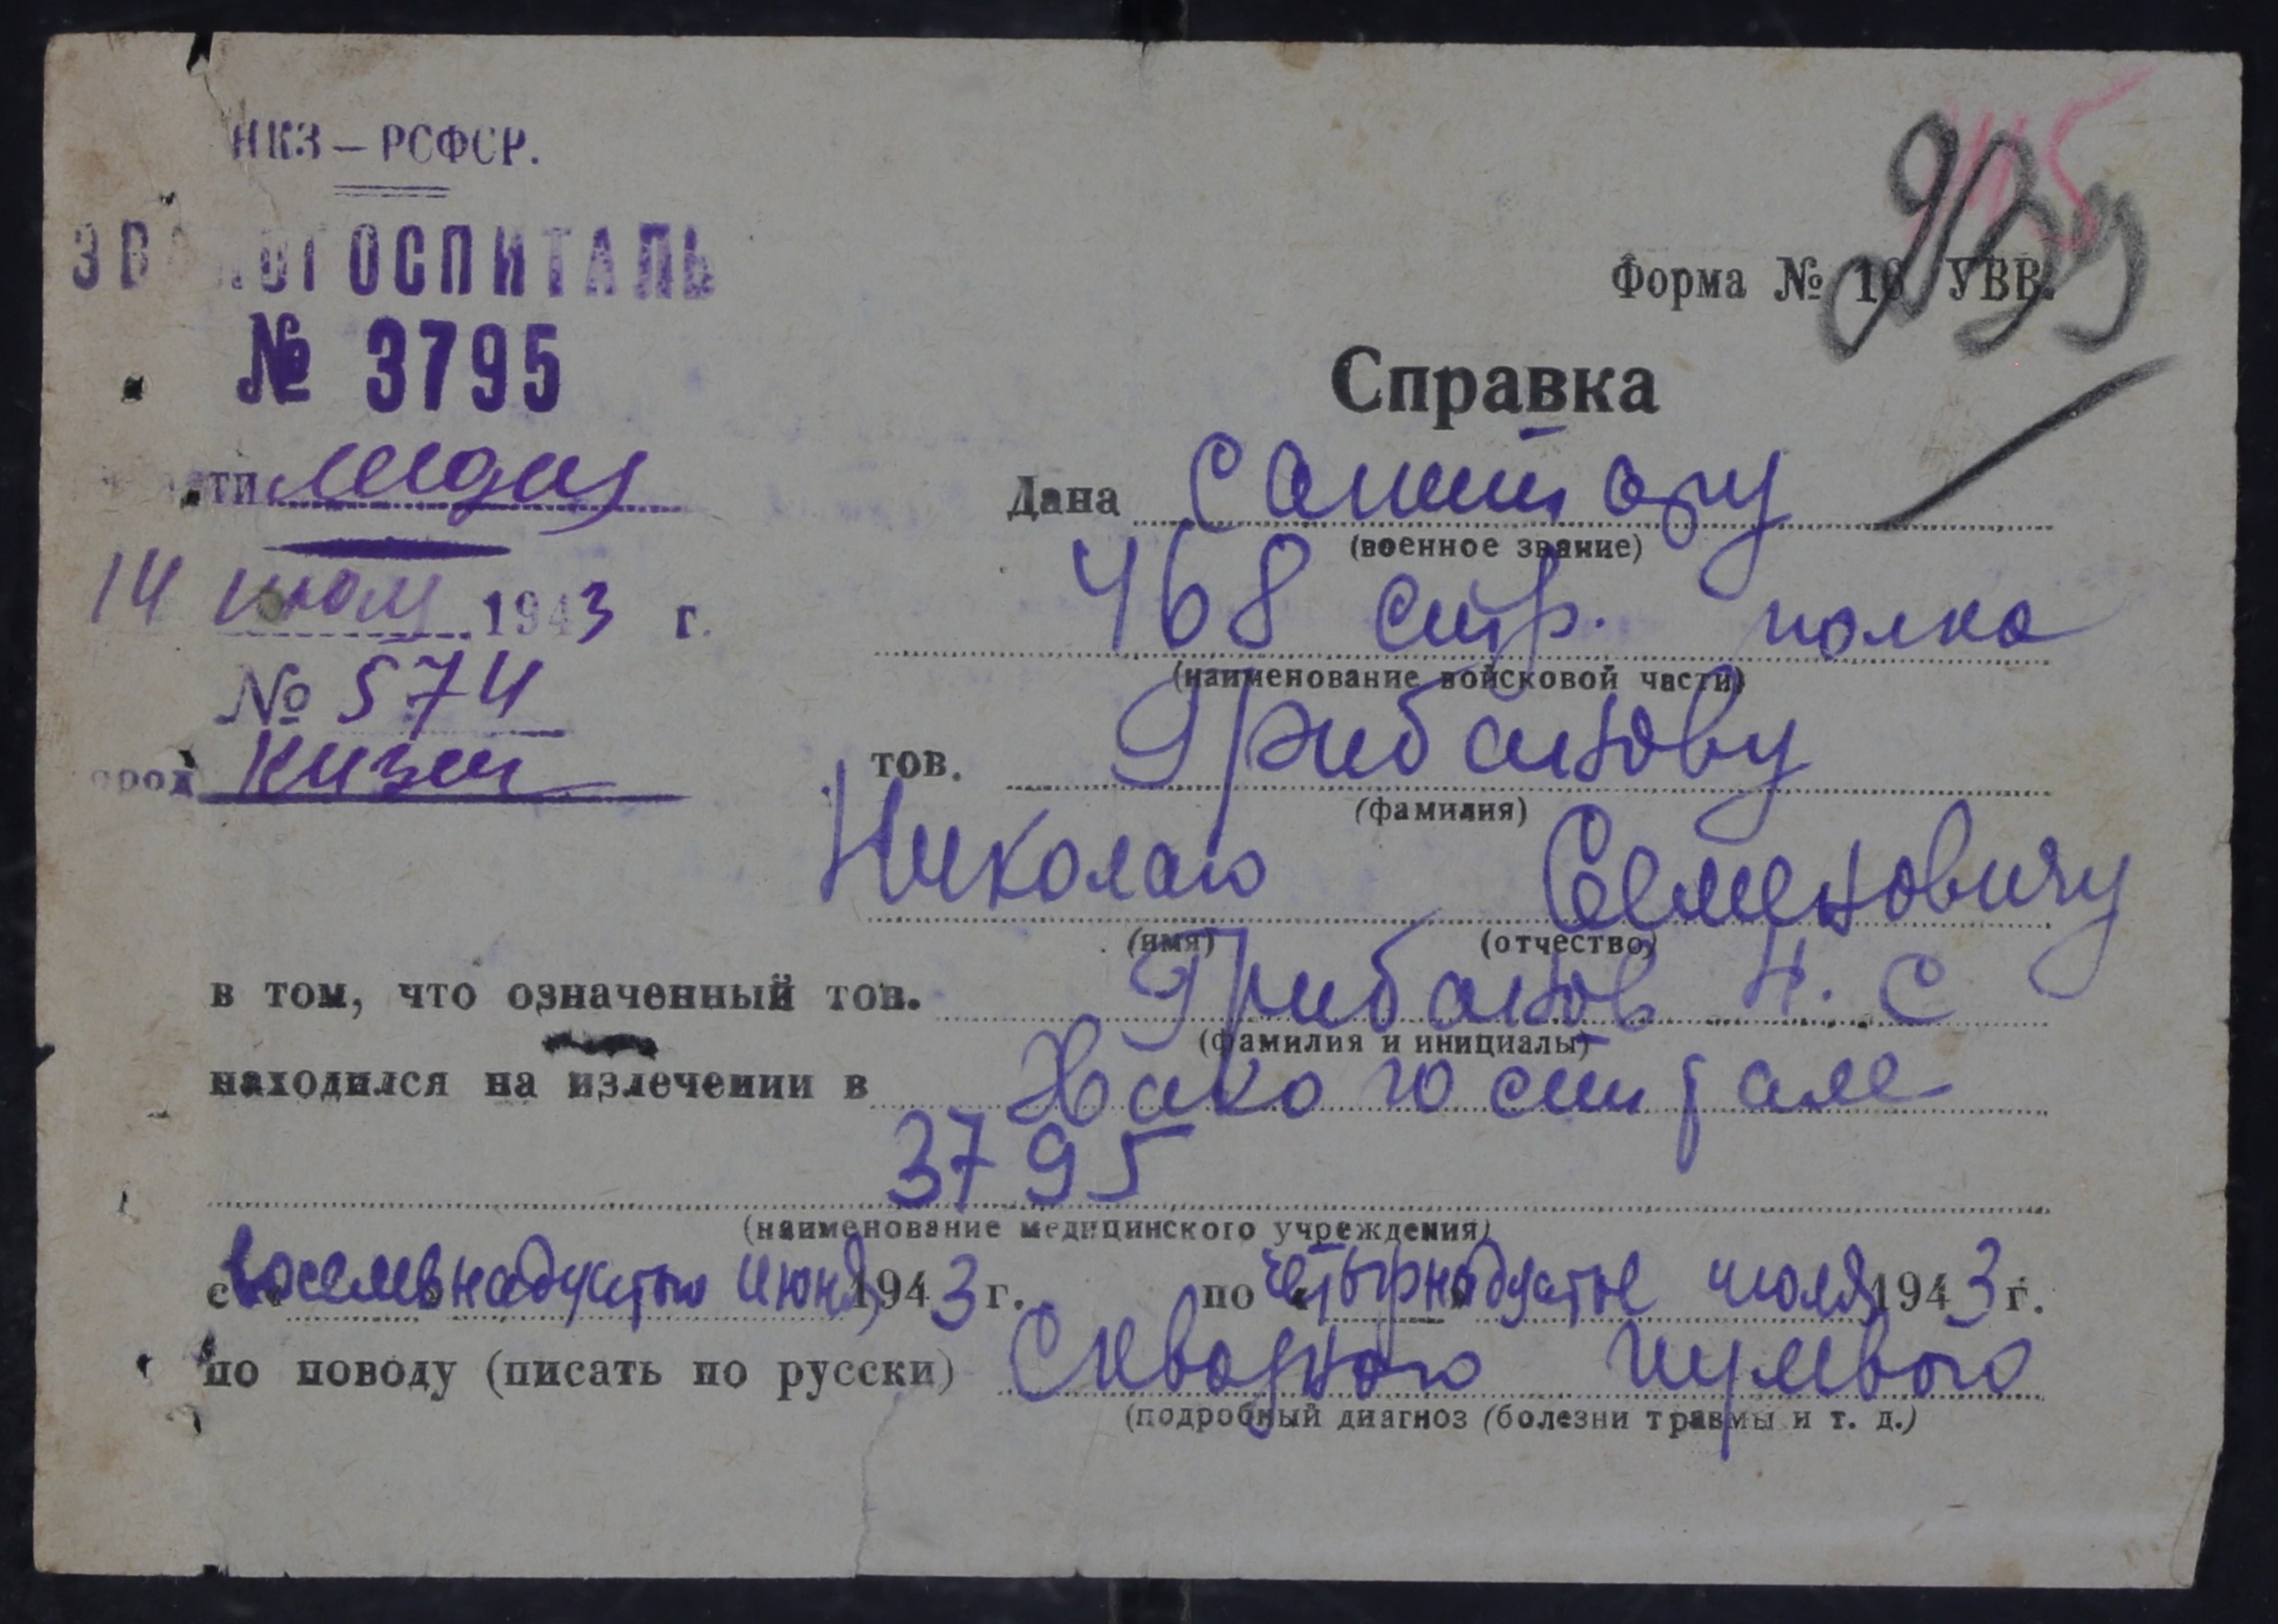 НКЗ — РСФСР.
ЭВАКОГОСПИТАЛЬ
№ 3795
14 июля 1943 г.
№ 574
город Кизел
Форма № 16 УВВ.
Справка
Дана санитару
(военное звание)
468 стр. полка
(наименование войсковой части)
тов. Грибанову
(фамилия)
Николаю Семеновичу
(имя) (отчество)
в том, что означенный тов. Грибанов Н. С
(фамилия и инициалы)
находился на излечении в Эвакогоспитале
3795
(наименование медицинского учреждения)
с восемнадцатого июня 1943 г. по четырнадцатое июля 1943 г.
по поводу (писать по русски) Сквозного пулевого
(подробный диагноз (болезни травмы и т. д.)